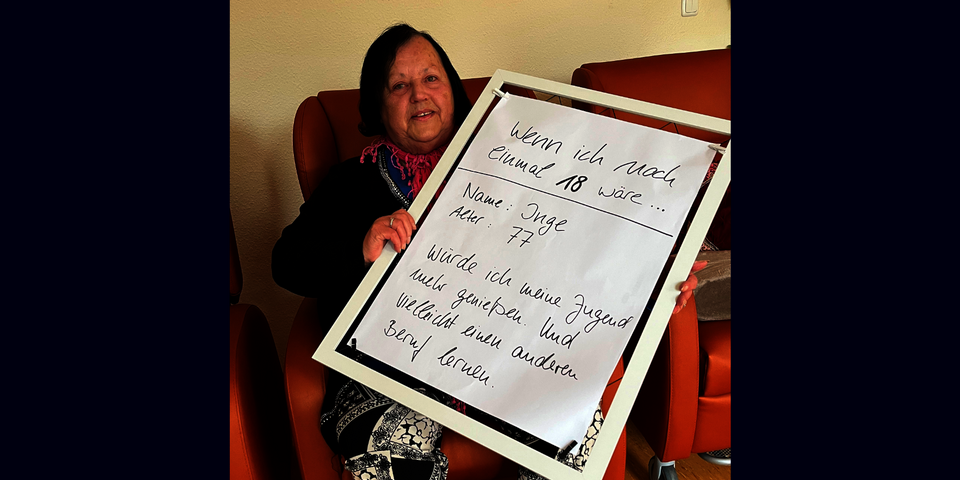 Wenn ich noch
einmal 18 wäre ...
Name: Inge
Alter: 77
Würde ich meine Jugend
mehr genießen. Und
vielleicht einen anderen
Beruf lernen.